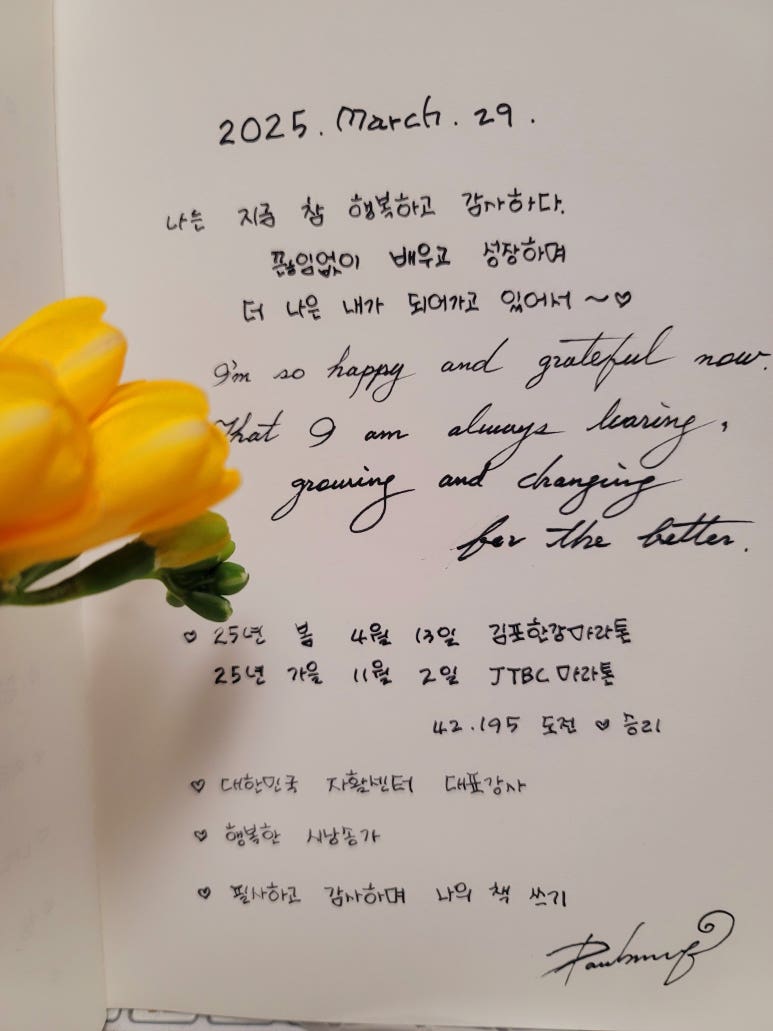 2025. March. 29.
나는 지금 참 행복하고 감사하다.
끊임없이 배우고 성장하며
더 나은 내가 되어가고 있어서 ~♡
I'm so happy and grateful now.
That I am always learing,
growing and changing
for the better.
♡ 25년 봄 4월 13일 김포한강마라톤
25년 가을 11월 2일 JTBC 마라톤
42.195 도전 ♡ 승리
♡ 대한민국 자활센터 대표강사
♡ 행복한 시낭송가
♡ 필사하고 감사하며 나의 책 쓰기